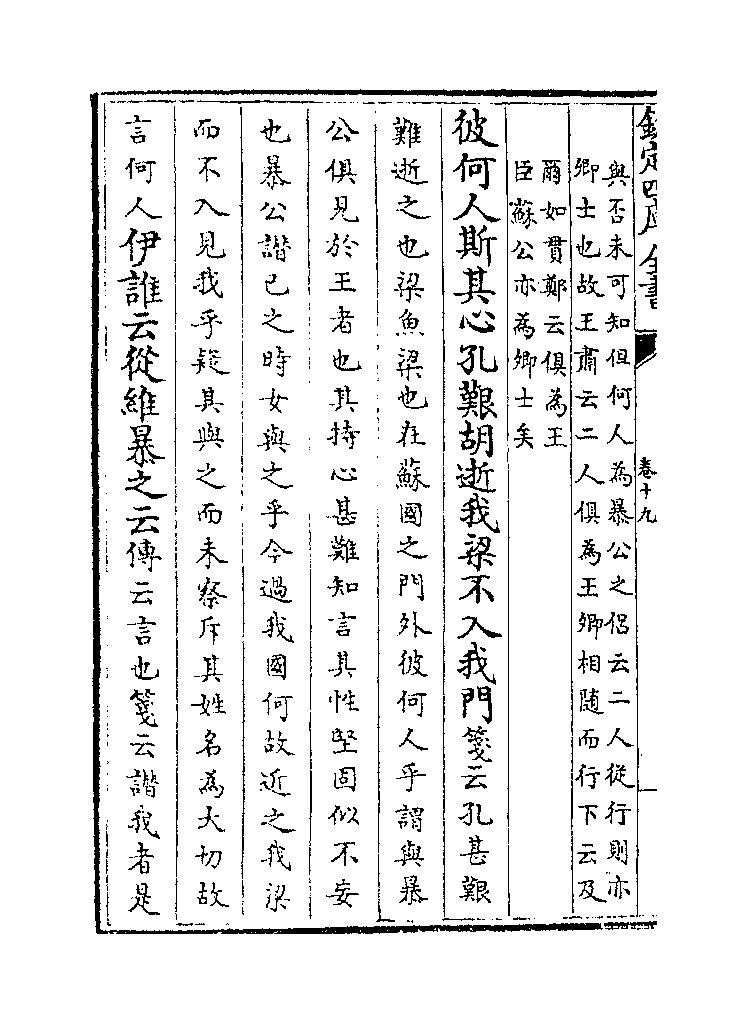 欽定四庫全書
卷十九
與否未可知但何人為暴公之侶云二人從行則亦
卿士也故王肅云二人俱為王卿相随而行下云及
爾如貫鄭云俱為王
臣蘇公亦為卿士矣
彼何人斯其心孔艱胡逝我梁不入我門箋云孔甚艱
難逝之也梁魚梁也在蘇國之門外彼何人乎謂與暴
公俱見於王者也其持心甚難知言其性堅固似不妄
也暴公譖己之時女與之乎今過我國何故近之我梁
而不入見我乎疑其與之而未察斥其姓名為大切故
言何人伊誰云從維暴之云傳云言也箋云譖我者是